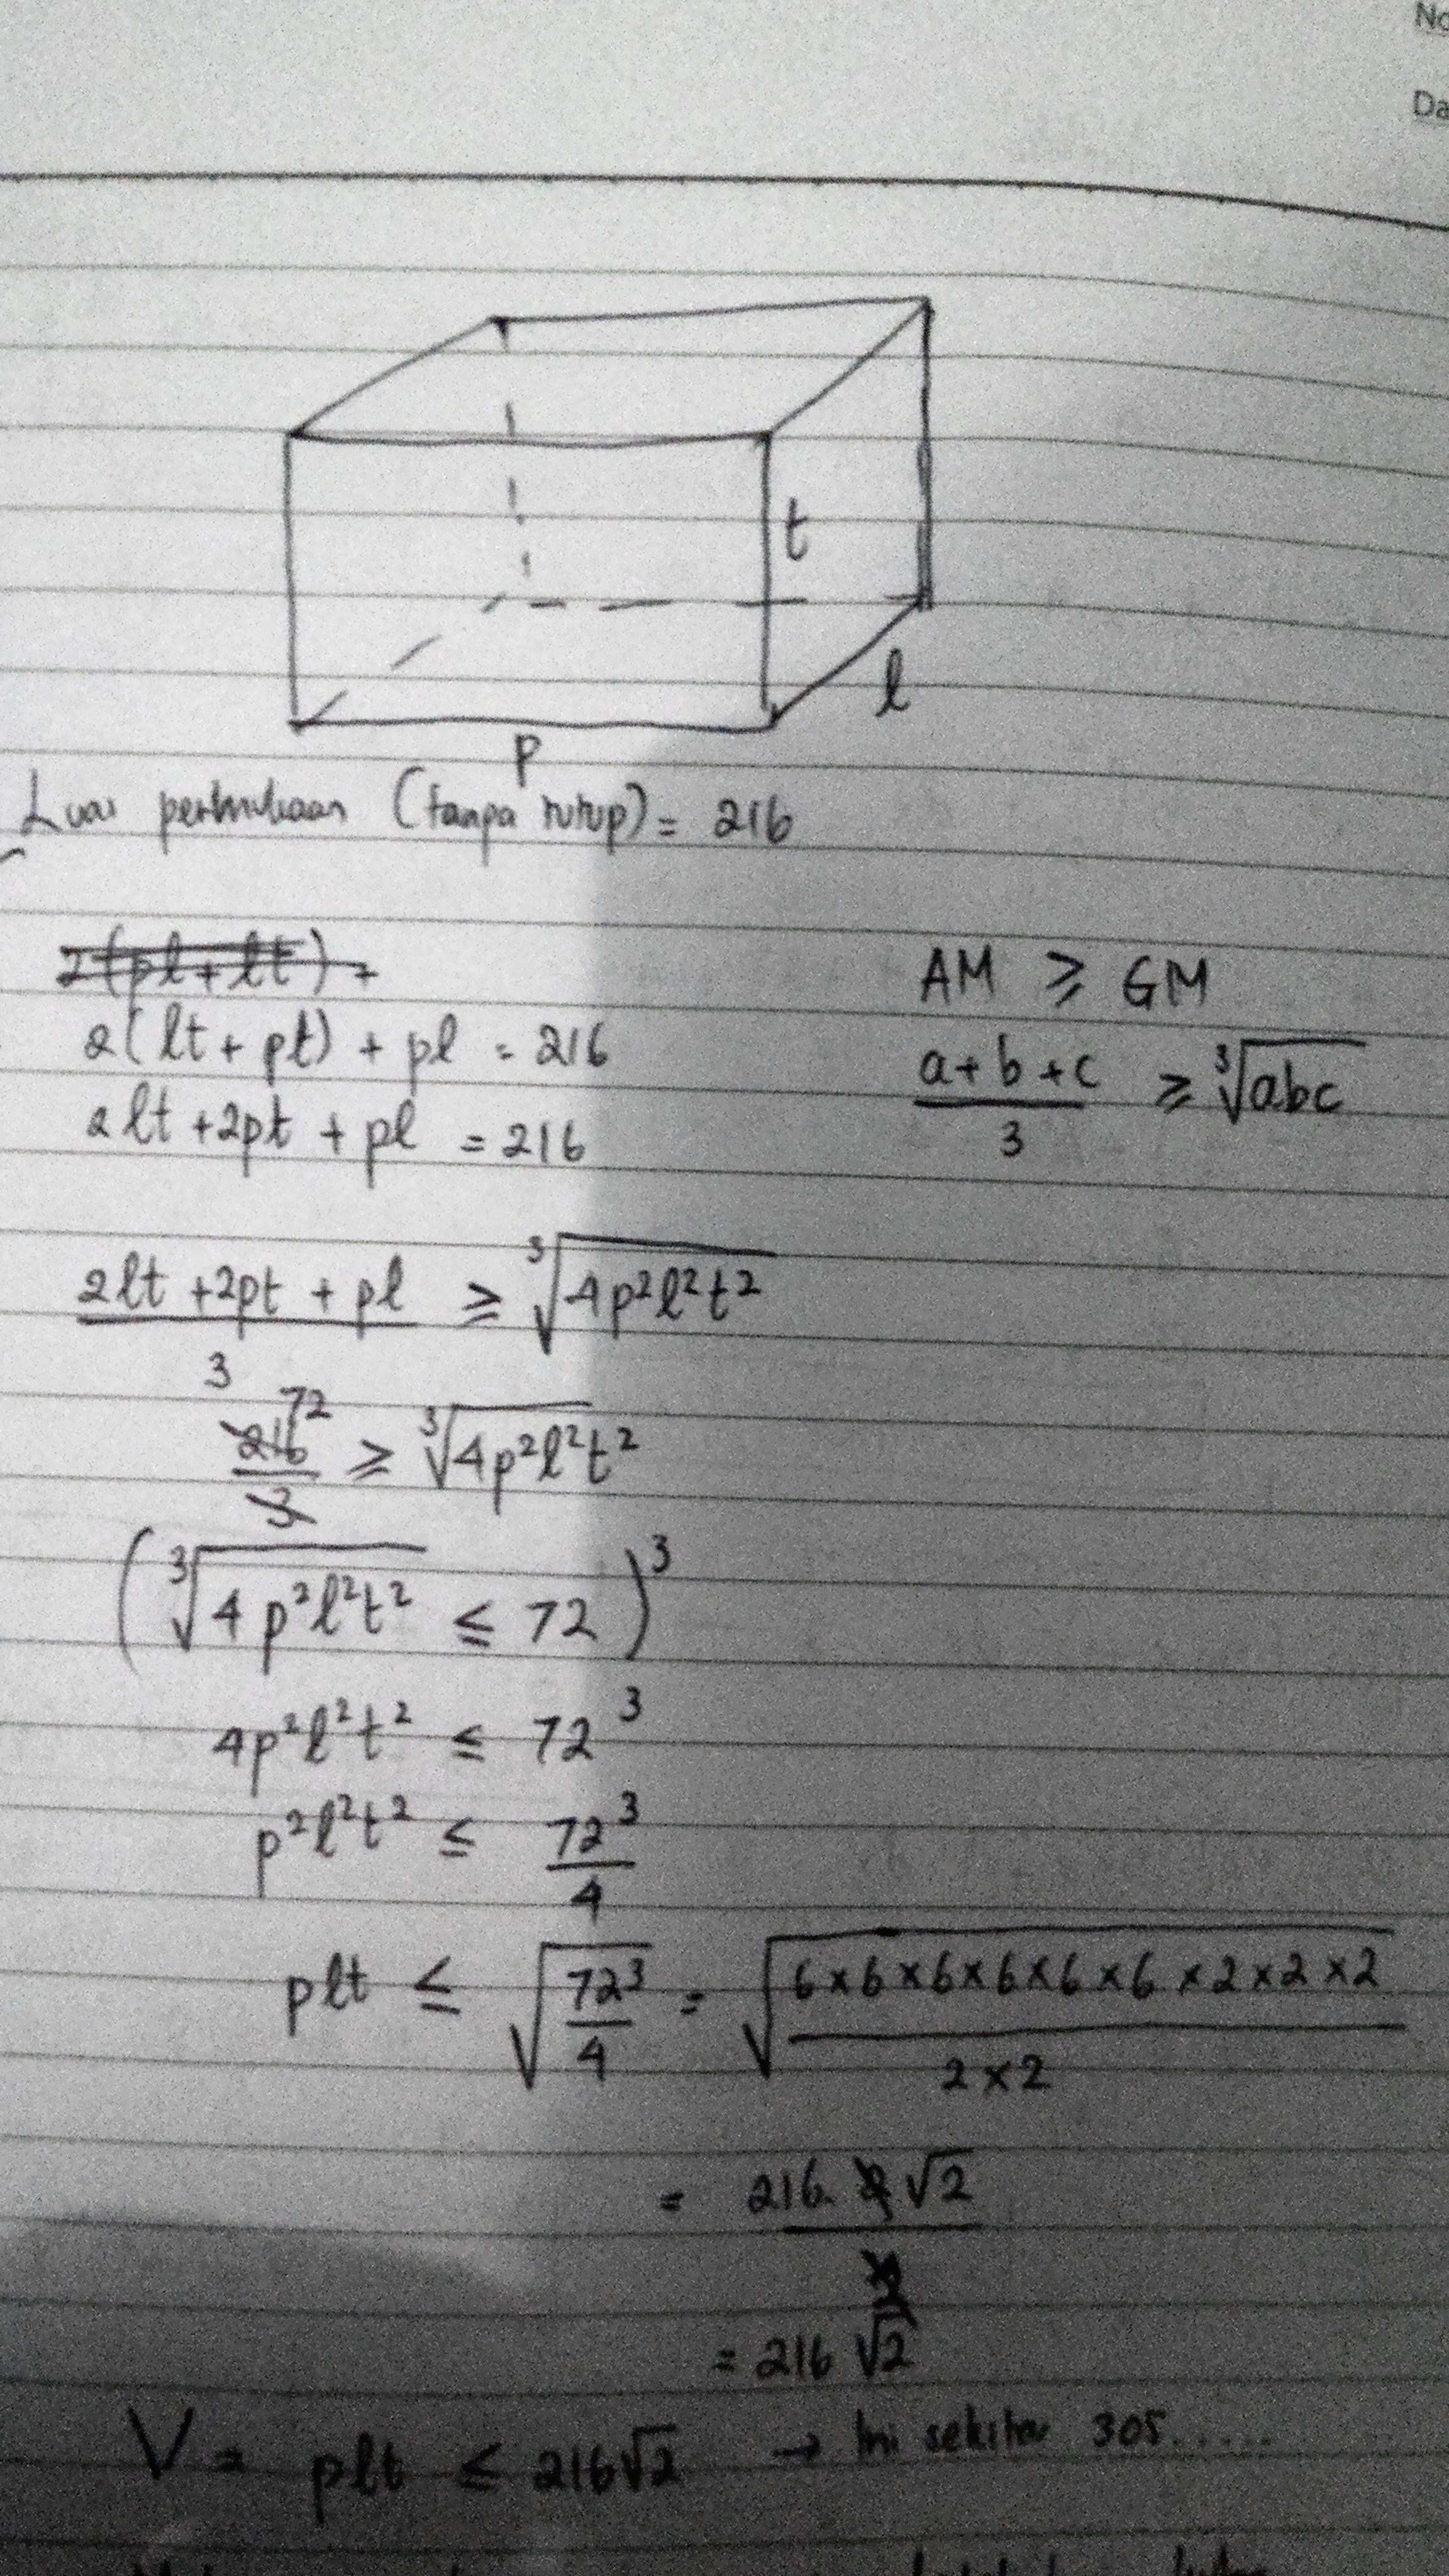 No
Da
t
l
p
Luas permukaan (tanpa tutup) = 216
2(pl + lt) +
2(lt + pt) + pl = 216
2lt + 2pt + pl = 216
AM ≥ GM
a + b + c / 3 ≥ ∛abc
2lt + 2pt + pl / 3 ≥ ∛4p²l²t²
216 / 3 72 ≥ ∛4p²l²t²
(∛4p²l²t² ≤ 72)³
4p²l²t² ≤ 72³
p²l²t² ≤ 72³ / 4
plt ≤ √72³ / 4 = √6×6×6×6×6×6×2×2×2 / 2×2
= 216. 2√2 / 2
= 216 √2
V = plt ≤ 216√2 → Ini sekitar 305......